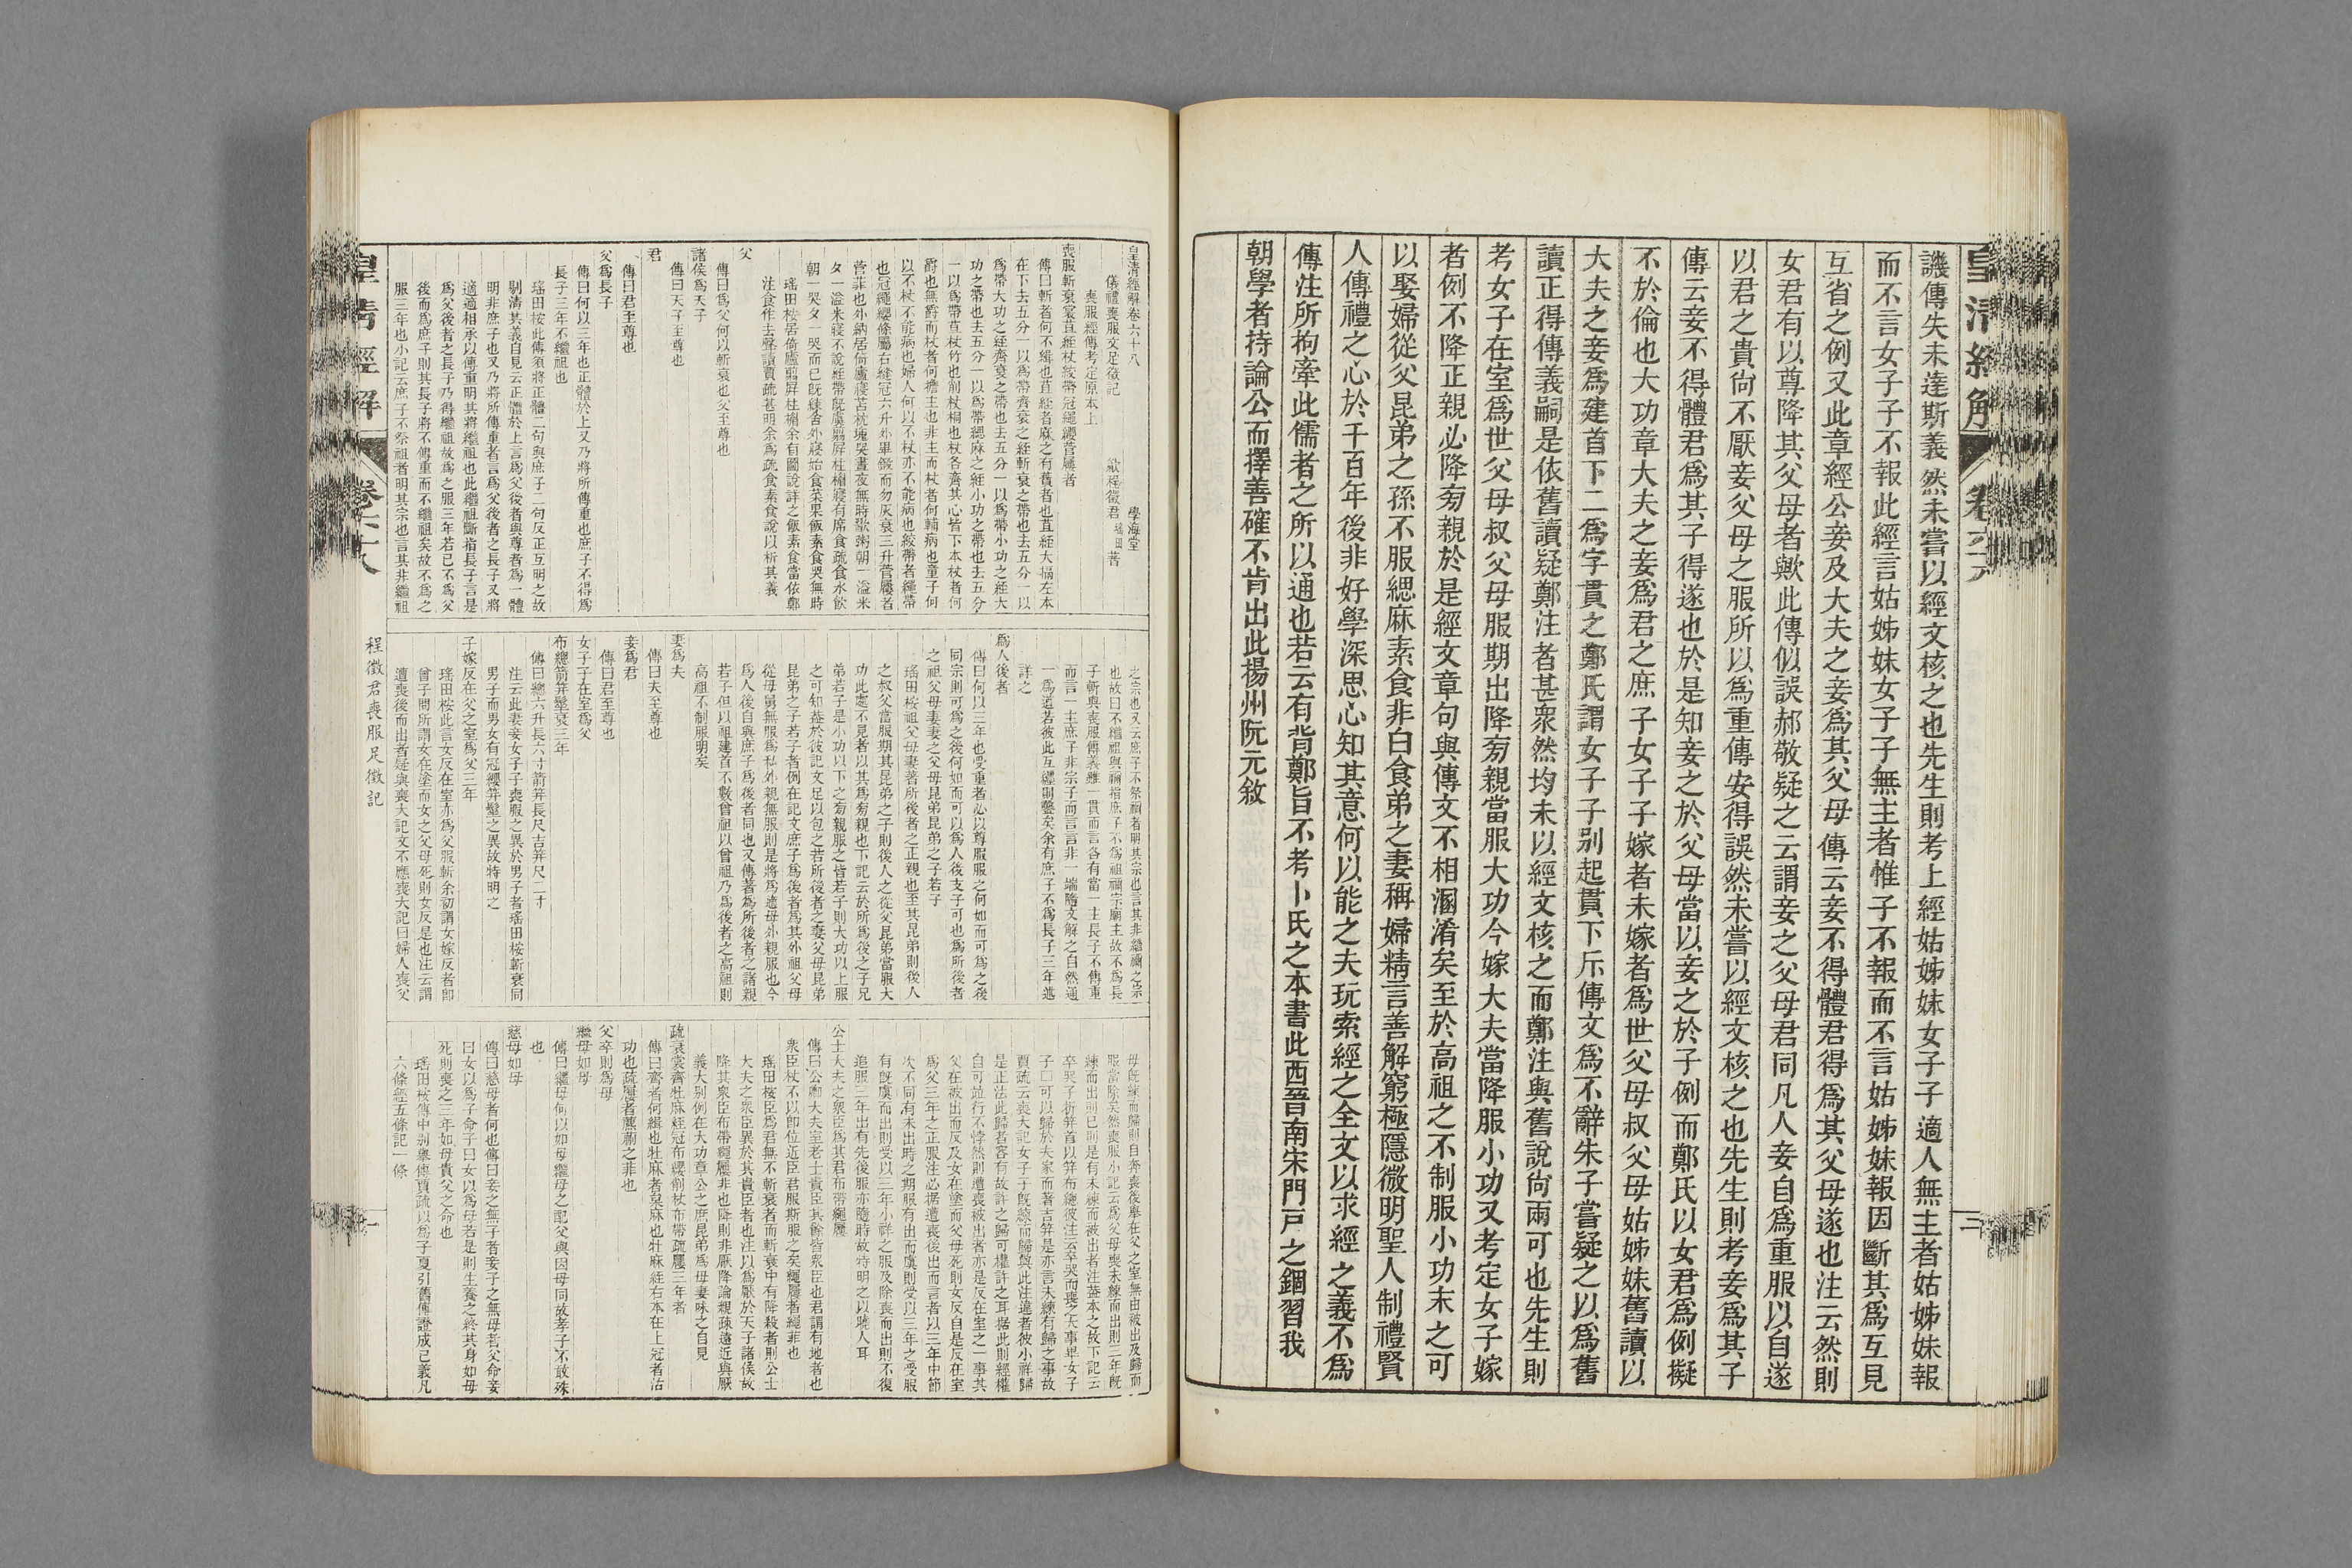 皇清經解
卷六十八
三
譏傳失未達斯義然未嘗以經文核之也先生則考上經姑姊妹女子子適人無主者姑姊妹報
而不言女子子不報此經言姑姊妹女子子無主者惟子不報而不言姑姊妹報因斷其爲互見
互省之例又此章經公妾及大夫之妾爲其父母傳云妾不得體君得爲其父母遂也注云然則
女君有以尊降其父母者歟此傳似誤郝敬疑之云謂妾之父母君同凡人妾自爲重服以自遂
以君之貴尙不厭妾父母之服所以爲重傳安得誤然未嘗以經文核之也先生則考妾爲其子
傳云妾不得體君爲其子得遂也於是知妾之於父母當以妾之於子例而鄭氏以女君爲例擬
不於倫也大功章大夫之妾爲君之庶子女子子嫁者未嫁者爲世父母叔父母姑姊妹舊讀以
大夫之妾爲建首下二爲字貫之鄭氏謂女子子别起貫下斥傳文爲不辭朱子嘗疑之以爲舊
讀正得傳義嗣是依舊讀疑鄭注者甚衆然均未以經文核之而鄭注與舊說尙兩可也先生則
考女子在室爲世父母叔父母服期出降旁親當服大功今嫁大夫當降服小功又考定女子嫁
者例不降正親必降旁親於是經文章句與傳文不相溷淆矣至於高祖之不制服小功末之可
以娶婦從父昆弟之孫不服緦麻素食非白食弟之妻稱婦精言善解窮極隱微明聖人制禮賢
人傳禮之心於千百年後非好學深思心知其意何以能之夫玩索經之全文以求經之義不爲
傳注所拘牽此儒者之所以通也若云有背鄭旨不考卜氏之本書此西晉南宋門戸之錮習我
朝學者持論公而擇善確不肯出此揚州阮元敘
皇清經解卷六十八 學海堂
儀禮喪服文足徵記 歙程徵君瑤田著
喪服經傳考定原本上
喪服斬衰裳苴絰杖絞帶冠繩纓菅屨者
傳曰斬者何不緝也苴絰者麻之有蕡者也苴絰大搹左本
在下去五分一以爲帶齊衰之絰斬衰之帶也去五分一以
爲帶大功之絰齊衰之帶也去五分一以爲帶小功之絰大
功之帶也去五分一以爲帶緦麻之絰小功之帶也去五分
一以爲帶苴杖竹也削杖桐也杖各齊其心皆下本杖者何
爵也無爵而杖者何擔主也非主而杖者何輔病也童子何
以不杖不能病也婦人何以不杖亦不能病也絞帶者繩帶
也冠繩纓條屬右縫冠六升外畢鍛而勿灰衰三升菅屨者
菅菲也外納居倚廬寢苫枕塊哭晝夜無時歠粥朝一溢米
夕一溢米寢不說絰帶旣虞翦屏柱楣寢有席食疏食水飮
朝一哭夕一哭而已旣練舍外寢始食菜果飯素食哭無時
瑤田桉居倚廬翦屏柱楣余有圖說詳之飯素食當依鄭
注食作去聲讀賈疏甚明余爲疏食素食說以析其義
父
傳曰爲父何以斬衰也父至尊也
諸侯爲天子
傳曰天子至尊也
君
傳曰君至尊也
父爲長子
傳曰何以三年也正體於上又乃將所傳重也庶子不得爲
長子三年不繼祖也
瑤田桉此傳須將正體二句與庶子二句反正互明之故
剔淸其義自見云正體於上言爲父後者與尊者爲一體
明非庶子也又乃將所傳重者言爲父後者之長子又將
適適相承以傳重明其將繼祖也此繼祖斷指長子言是
爲父後者之長子乃得繼祖故爲之服三年若已不爲父
後而爲庶子則其長子將不傳重而不繼祖矣故不爲之
服三年也小記云庶子不祭祖者明其宗也言其非繼祖
之宗也又云庶子不祭禰者明其宗也言其非繼禰之宗
也故曰不繼祖與禰指庶子不爲祖禰宗廟主故不爲長
子斬與喪服傳義雖一貫而言各有當一主長子不傳重
而言一主庶子非宗子而言言非一端隨文解之自然通
一爲道若彼此互纒則鑿矣余有庶子不爲長子三年述
詳之
爲人後者
傳曰何以三年也受重者必以尊服服之何如而可爲之後
同宗則可爲之後何如而可以爲人後支子可也爲所後者
之祖父母妻妻之父母昆弟昆弟之子若子
瑤田桉祖父母妻著所後者之正親也至其昆弟則後人
之叔父當服期其昆弟之子則後人之從父昆弟當服大
功此處不見者以其爲旁親也下記云於所爲後之子兄
弟若子是小功以下之旁親服之皆若子則大功以上服
之可知葢於彼記文足以包之若所後者之妻父母昆弟
昆弟之子若子者例在記文庶子爲後者爲其外祖父母
從母舅無服爲私外親無服則是將爲適母外親服也今
爲人後自與庶子爲後者同也又傳著爲所後者之諸親
若子但以祖建首不數曾祖以曾祖乃爲後者之高祖則
高祖不制服明矣
妻爲夫
傳曰夫至尊也
妾爲君
傳曰君至尊也
女子子在室爲父
布總箭笄髽衰三年
傳曰總六升長六寸箭笄長尺吉笄尺二寸
注云此妻妾女子子喪服之異於男子者瑤田桉斬衰同
男子而男女有冠纓笄髽之異故特明之
子嫁反在父之室爲父三年
瑤田桉此言女反在室亦爲父服斬余初謂女嫁反者卽
曾子問所謂女在塗而女之父母死則女反是也注云謂
遭喪後而出者疑與喪大記文不應喪大記曰婦人喪父
母旣練而歸則自奔喪後畢在父之室無由被出及歸而
服當除矣然喪服小記云爲父母喪未練而出則三年旣
練而出則已則是有未練而被出者注葢本之故下記云
卒哭子折笄首以笄布總彼注云卒哭而喪之大事畢女子
子□可以歸於夫家而著吉笄是亦言未練有歸之事故
賈疏云喪大記女子子旣練而歸與此注違者彼小祥歸
是正法此歸者容有故許之歸可權許之耳据此則經權
自可竝行不悖然則遭喪被出者亦是反在室之一事其
父在被出而反及女在塗而父母死則女反自是反在室
爲父三年之正服注必据遭喪後出而言者以三年中節
次不同有未出時之期服有出而虞則受以三年之受服
有旣虞而出則受以三年小祥之服及除喪而出則不復
追服三年出有先後服亦隨時故特明之以曉人耳
公士大夫之衆臣爲其君布帶繩屨
傳曰公卿大夫室老士貴臣其餘皆衆臣也君謂有地者也
衆臣杖不以卽位近臣君服斯服之矣繩屨者繩菲也
瑤田桉臣爲君無不斬衰者而斬衰中有降殺者則公士
大夫之衆臣異於其貴臣者也注以爲厭於天子諸侯故
降其衆臣布帶繩屨非也降則非厭降論親疎遠近與厭
義大別例在大功章公之庶昆弟爲母妻昧之自見
疏衰裳齊牡麻絰冠布纓削杖布帶疏屨三年者
傳曰齊者何緝也牡麻者枲麻也牡麻絰右本在上冠者沽
功也疏屨者藨蒯之菲也
父卒則爲母
繼母如母
傳曰繼母何以如母繼母之配父與因母同故孝子不敢殊
也
慈母如母
傳曰慈母者何也傳曰妾之無子者妾子之無母者父命妾
曰女以爲子命子曰女以爲母若是則生養之終其身如母
死則喪之三年如母貴父之命也
瑤田桉傳中别舉傳賈疏以爲子夏引舊傳證成己義凡
六條經五條記一條
程徵君喪服足徵記
皇清經解
卷六十八
一